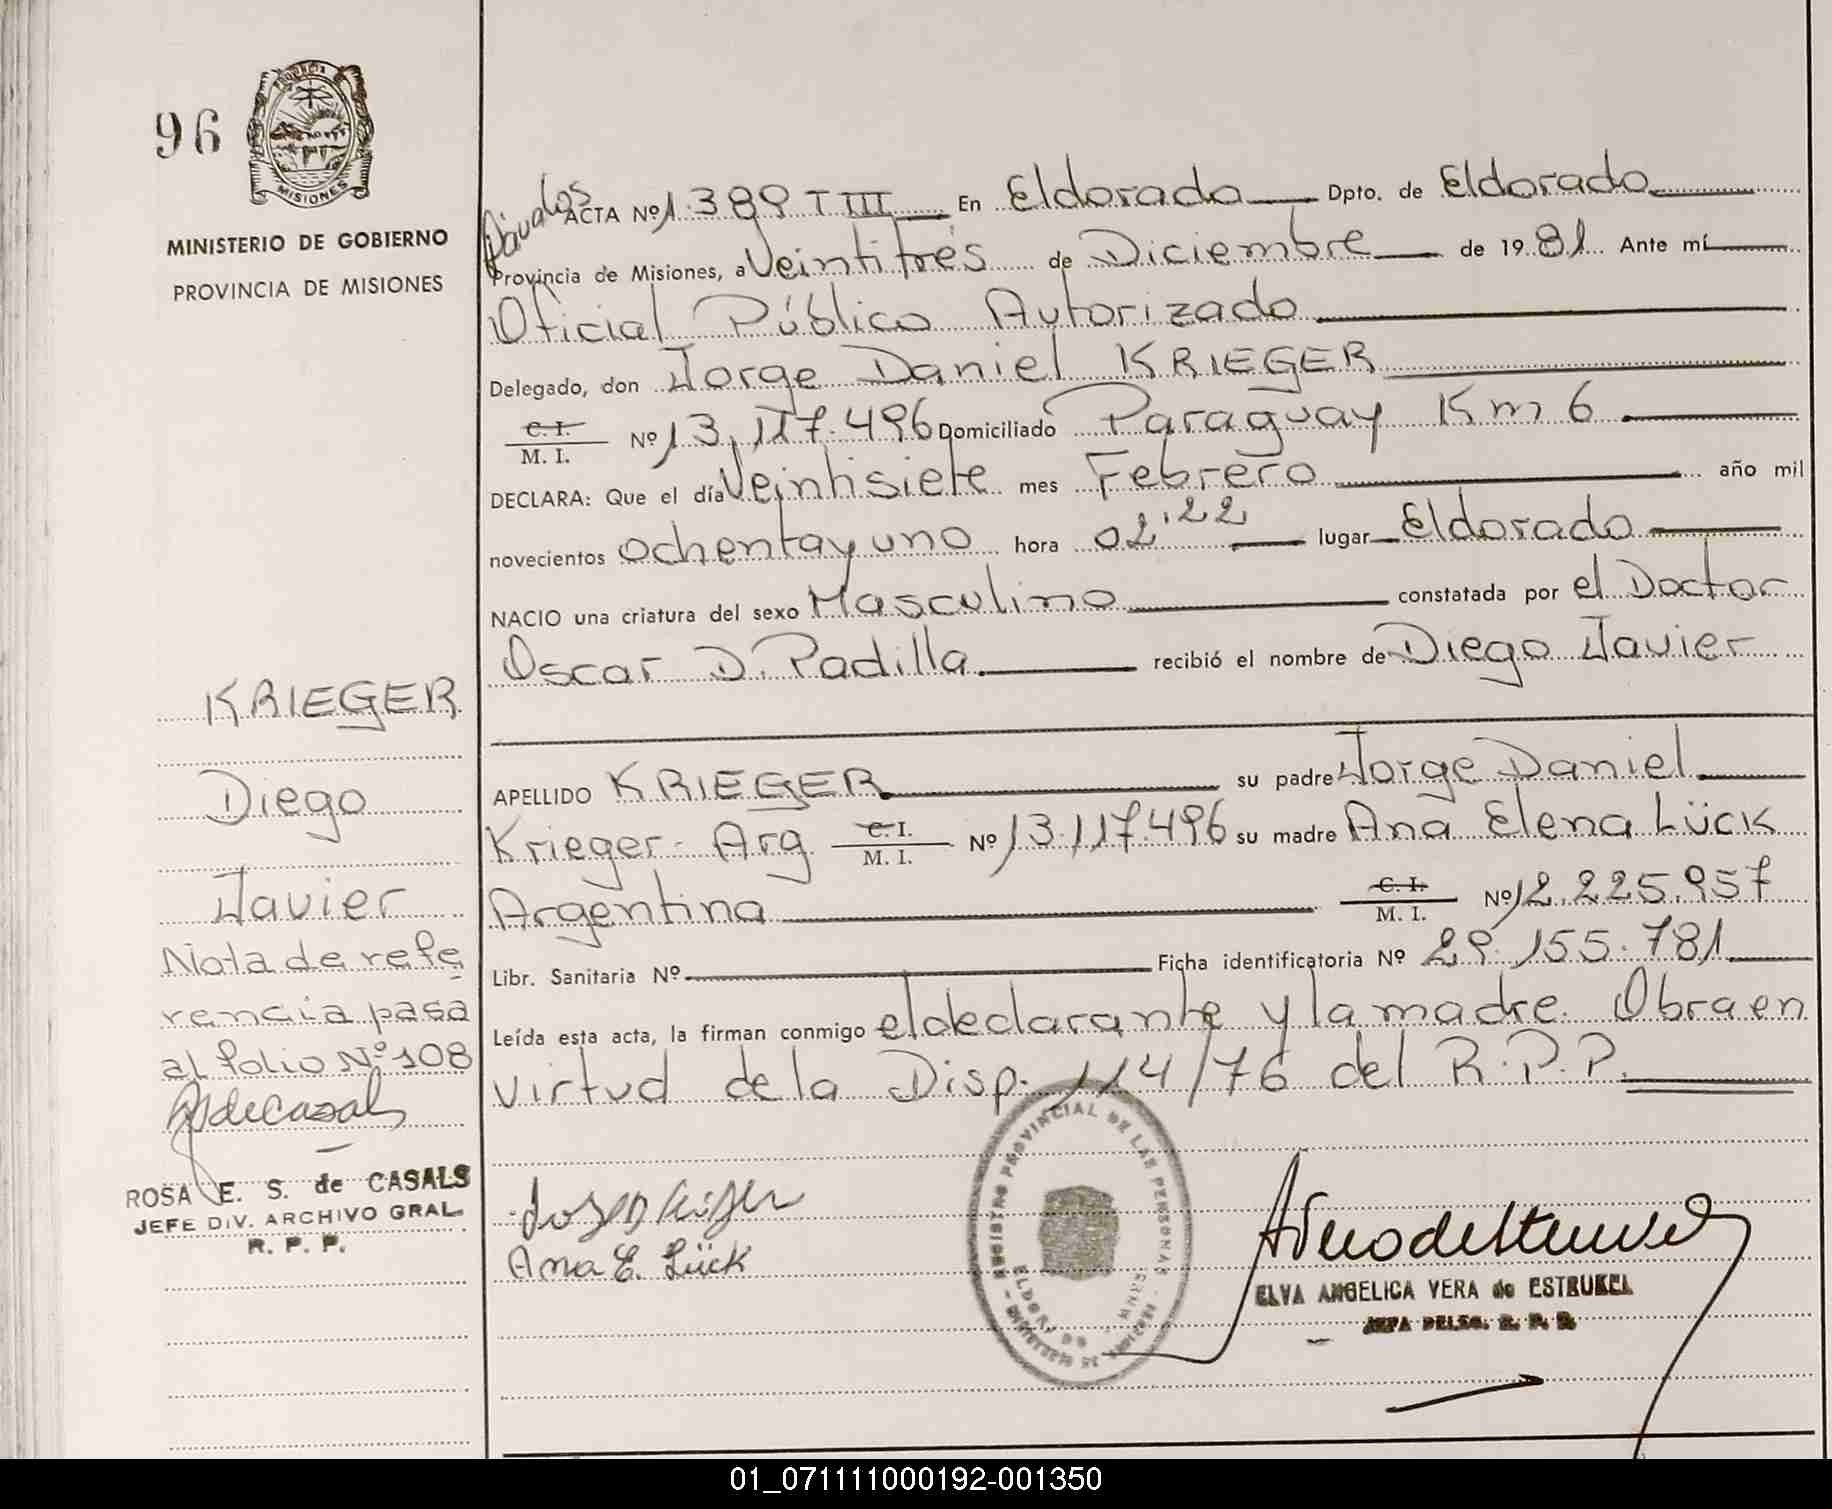 96
PROVINCIA
MISIONES
MINISTERIO DE GOBIERNO
PROVINCIA DE MISIONES
KRIEGER
Diego
Javier
Nota de refe
rencia pasa
al folio Nº 108
ROSA E. S. de CASALS
JEFE DIV. ARCHIVO GRAL.
R. P. P.
Dávalos
ACTA Nº 1.389 T III En Eldorado Dpto. de Eldorado
Provincia de Misiones, a Veintitrés de Diciembre de 1981 Ante mí
Oficial Público Autorizado
Delegado, don Jorge Daniel KRIEGER
C. I.
M. I. Nº 13.117.496 Domiciliado Paraguay Km 6
DECLARA: Que el día Veintisiete mes Febrero año mil
novecientos ochentayuno hora 02'22 lugar Eldorado
NACIO una criatura del sexo Masculino constatada por el Doctor
Oscar D. Padilla recibió el nombre de Diego Javier
APELLIDO KRIEGER su padre Jorge Daniel
Krieger - Arg C. I. M. I. Nº 13.117.496 su madre Ana Elena Lück
Argentina C. I. M. I. Nº 12.225.957
Libr. Sanitaria Nº Ficha identificatoria Nº 29.155.781
Leída esta acta, la firman conmigo el declarante y la madre. Obra en
virtud de la Disp. 114/76 del R.P.P.
Ana E. Lück
REGISTRO PROVINCIAL DE LAS PERSONAS
ELDORADO
ELVA ANGELICA VERA de ESTRUKEL
JEFA DELEG. R. P. P.
01_071111000192-001350